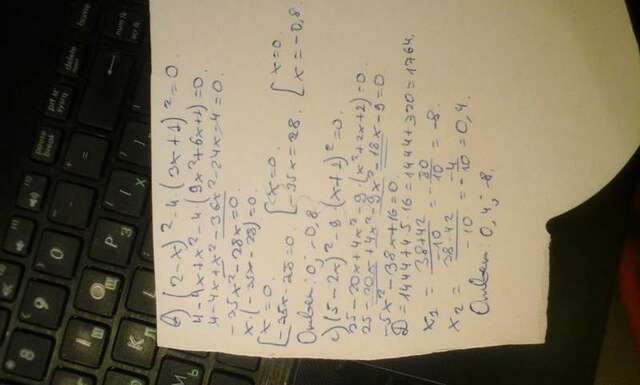 б) (2-x)²-4(3x+1)²=0.
4-4x+x²-4(9x²+6x+1)=0.
4-4x+x²-36x²-24x-4=0.
-35x²-28x=0.
x(-35x-28)=0.
[x=0. [x=0. [x=0.
[-35x-28=0. [-35x=28. [x=-0,8.
Ответ: 0; -0,8.
с) (5-2x)²-9(x+1)²=0.
25-20x+4x²-9(x²+2x+1)=0.
25-20x+4x²-9x²-18x-9=0
-5x²-38x+16=0.
D=1444+4·5·16=1444+320=1764.
x₁=38+42/-10=-80/10=-8.
x₂=38-42/-10=-4/-10=0,4.
Ответ: 0,4; -8.
home
delete
prt sc
sysrq